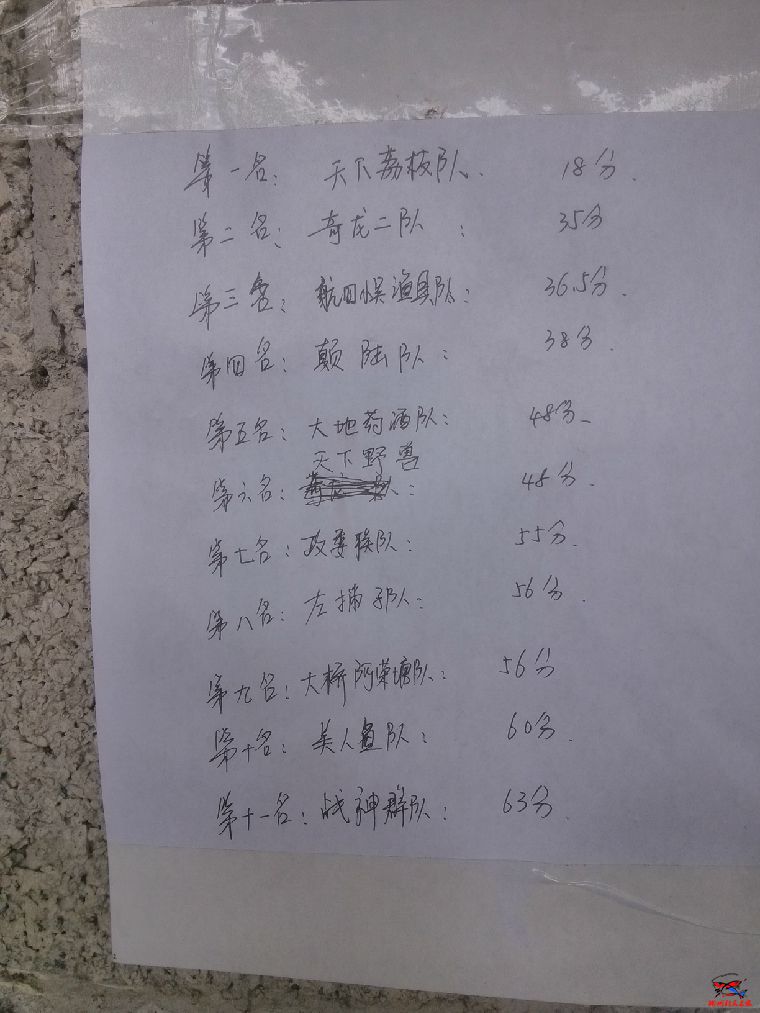 第一名: 天下荔枝队. 18分.
第二名: 奇龙二队 : 35分
第三名: 航四娱渔具队: 36.5分.
第四名: 颠陆队: 38分.
第五名: 大地药酒队: 48分
天下野兽
第六名: 队: 48分.
第七名: 队: 55分.
第八名: 左捕 队: 56分.
第九名: 大桥阿荣塘队: 56分
第十名: 美人鱼队: 60分.
第十一名: 战神群队: 63分.